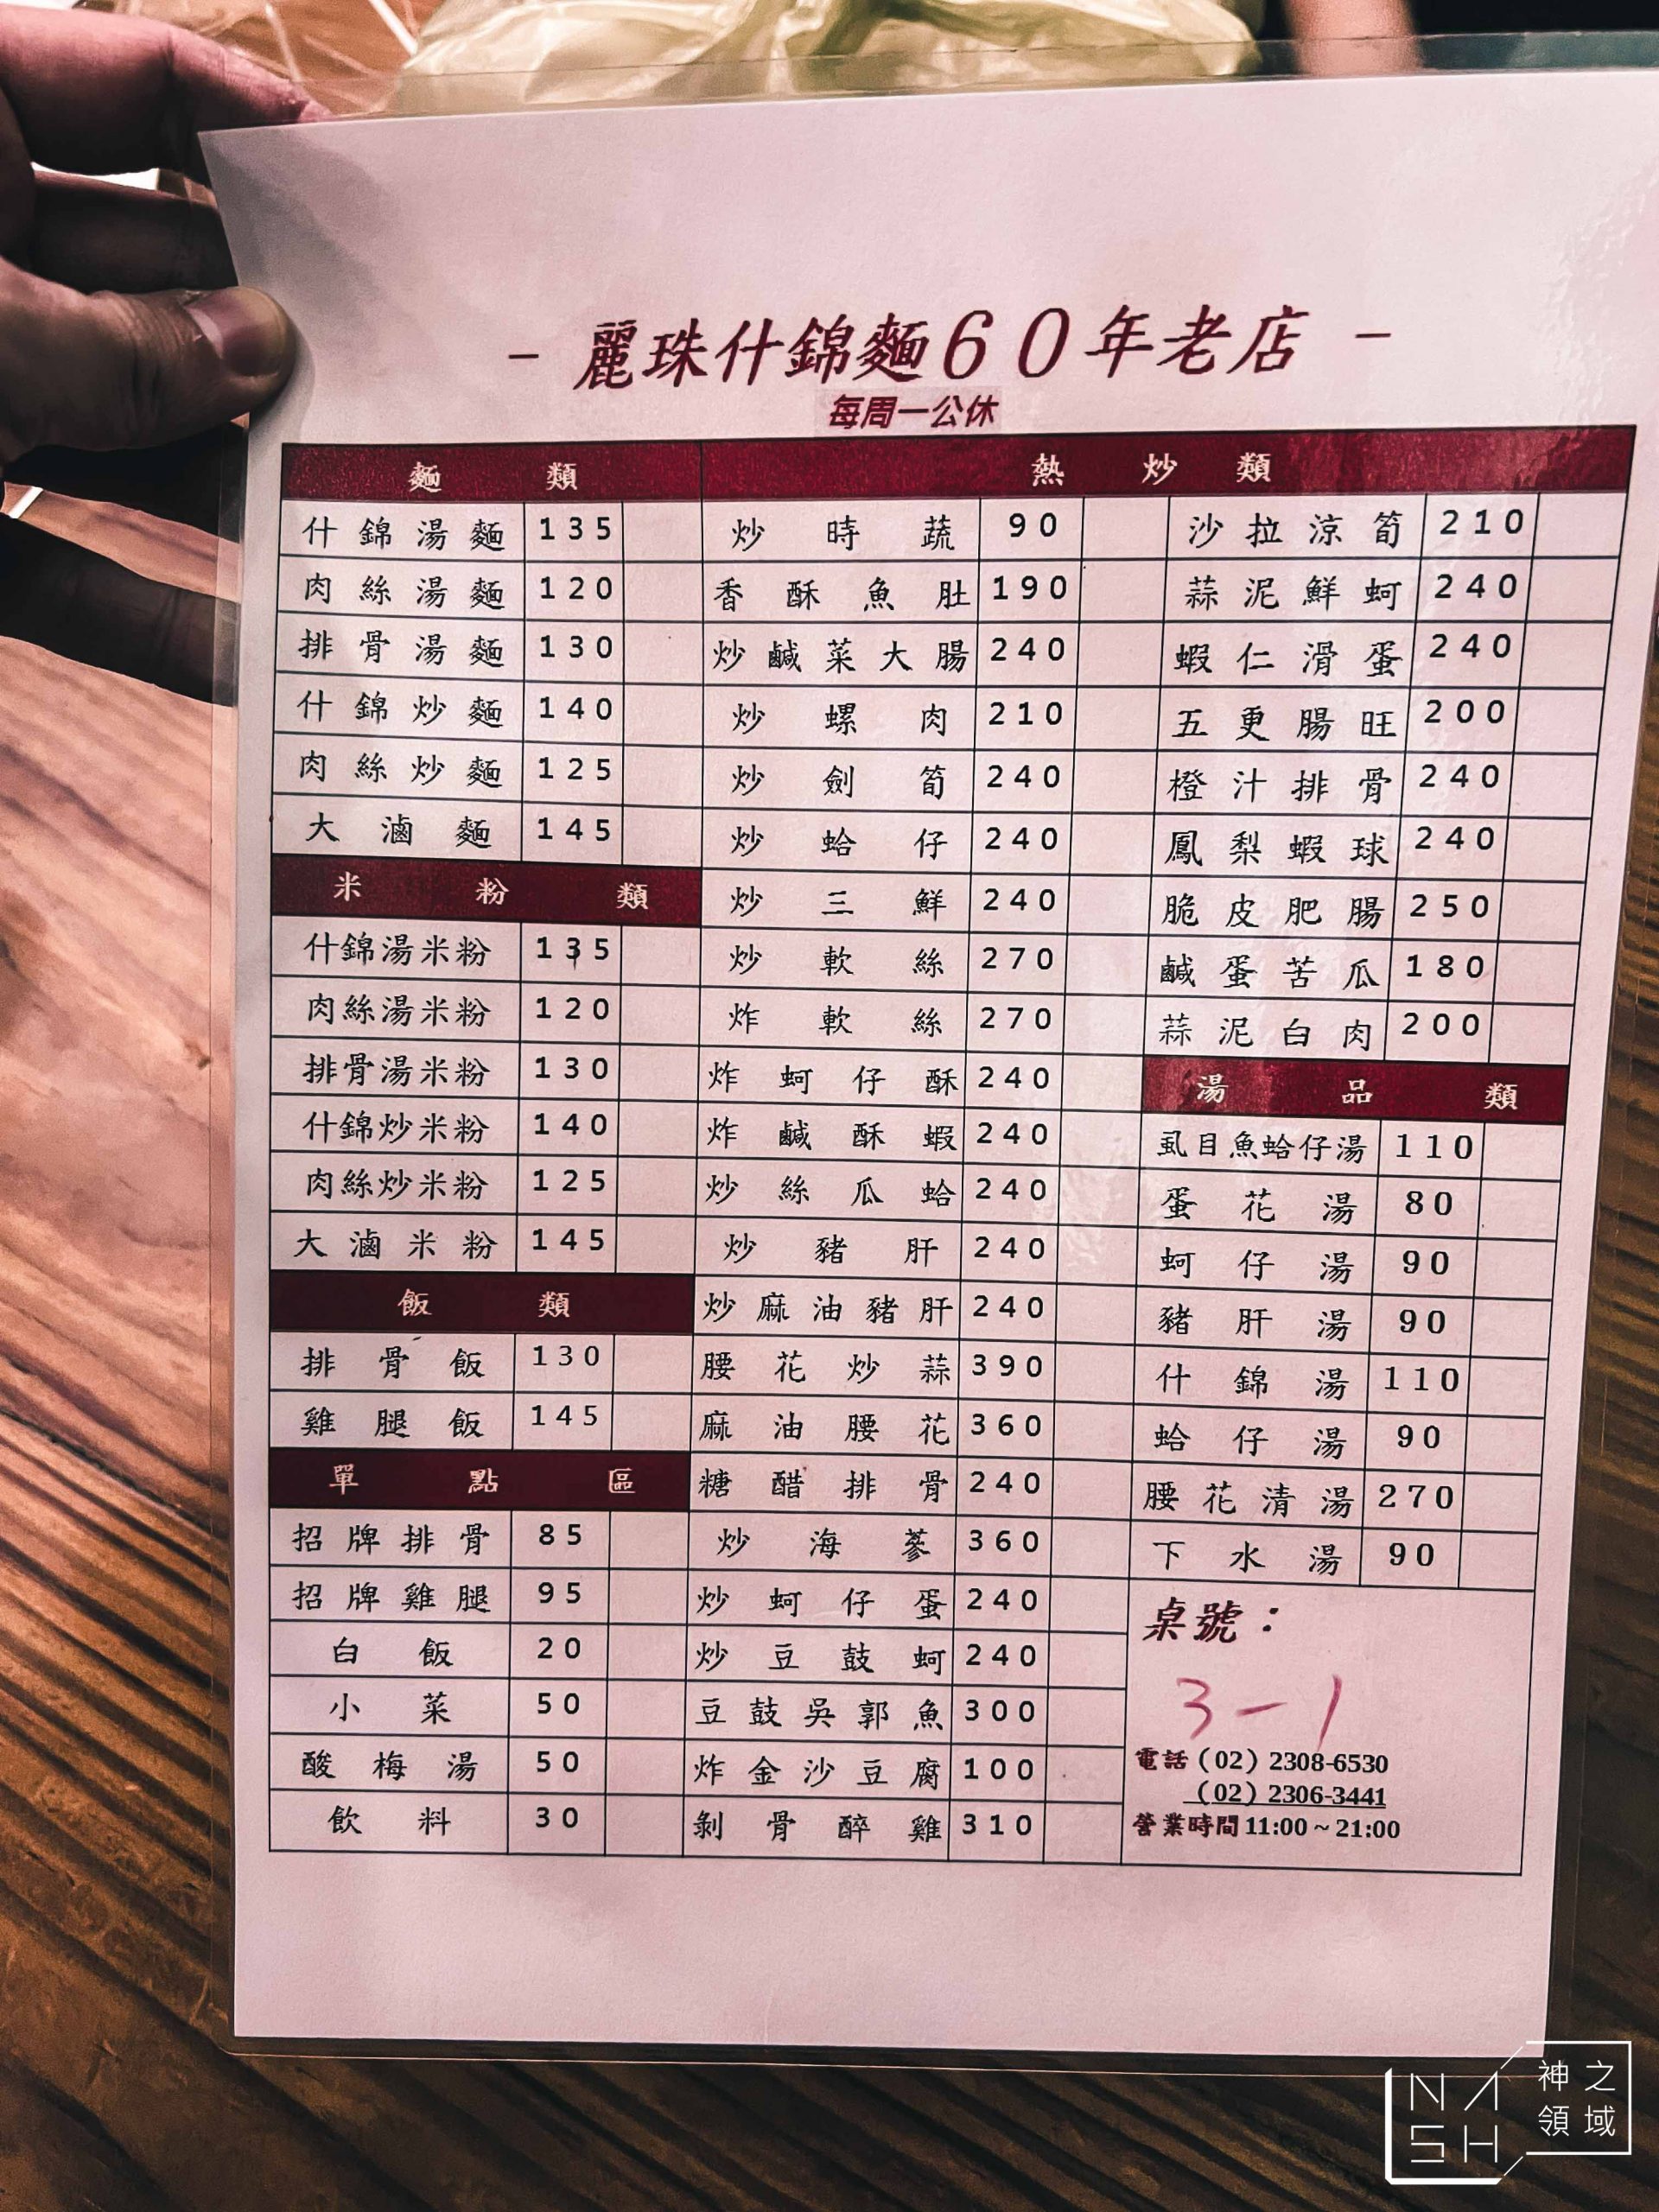 - 麗珠什錦麵60年老店 -
每周一公休
麵類
什錦湯麵 135
肉絲湯麵 120
排骨湯麵 130
什錦炒麵 140
肉絲炒麵 125
大滷麵 145
米粉類
什錦湯米粉 135
肉絲湯米粉 120
排骨湯米粉 130
什錦炒米粉 140
肉絲炒米粉 125
大滷米粉 145
飯類
排骨飯 130
雞腿飯 145
單點區
招牌排骨 85
招牌雞腿 95
白飯 20
小菜 50
酸梅湯 50
飲料 30
熱炒類
炒時蔬 90
香酥魚肚 190
炒鹹菜大腸 240
炒螺肉 210
炒劍筍 240
炒蛤仔 240
炒三鮮 240
炒軟絲 270
炸軟絲 270
炸蚵仔酥 240
炸鹹酥蝦 240
炒絲瓜蛤 240
炒豬肝 240
炒麻油豬肝 240
腰花炒蒜 390
麻油腰花 360
糖醋排骨 240
炒海蔘 360
炒蚵仔蛋 240
炒豆鼓蚵 240
豆鼓吳郭魚 300
炸金沙豆腐 100
剝骨醉雞 310
沙拉涼筍 210
蒜泥鮮蚵 240
蝦仁滑蛋 240
五更腸旺 200
橙汁排骨 240
鳳梨蝦球 240
脆皮肥腸 250
鹹蛋苦瓜 180
蒜泥白肉 200
湯品類
虱目魚蛤仔湯 110
蛋花湯 80
蚵仔湯 90
豬肝湯 90
什錦湯 110
蛤仔湯 90
腰花清湯 270
下水湯 90
桌號：
3-1
電話（02）2308-6530
（02）2306-3441
營業時間11:00~21:00
NASH
神之領域